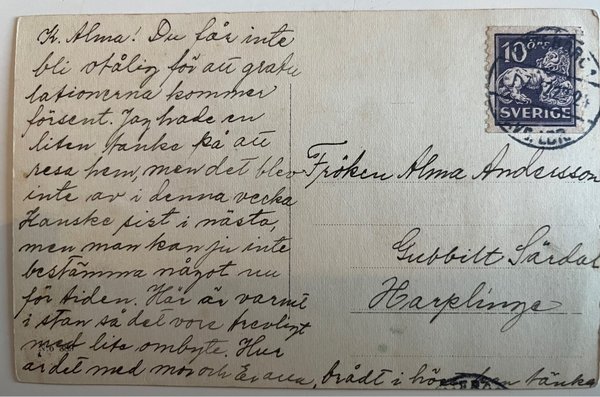 K. Alma! Du får inte
bli otålig för att gratu
lationerna kommer
försent. Jag hade en
liten tanke på att
resa hem, men det blev
inte av i denna vecka
Kanske sist i nästa,
men man kan ju inte
bestämma något nu
för tiden. Här är varmt
i stan så det vore trevligt
med lite ombyte. Hur
är det med mor och
brådt i
tänka
10 ÖRE
SVERIGE
Fröken Alma Andersson
Gubbilt Särdal
Harplinge